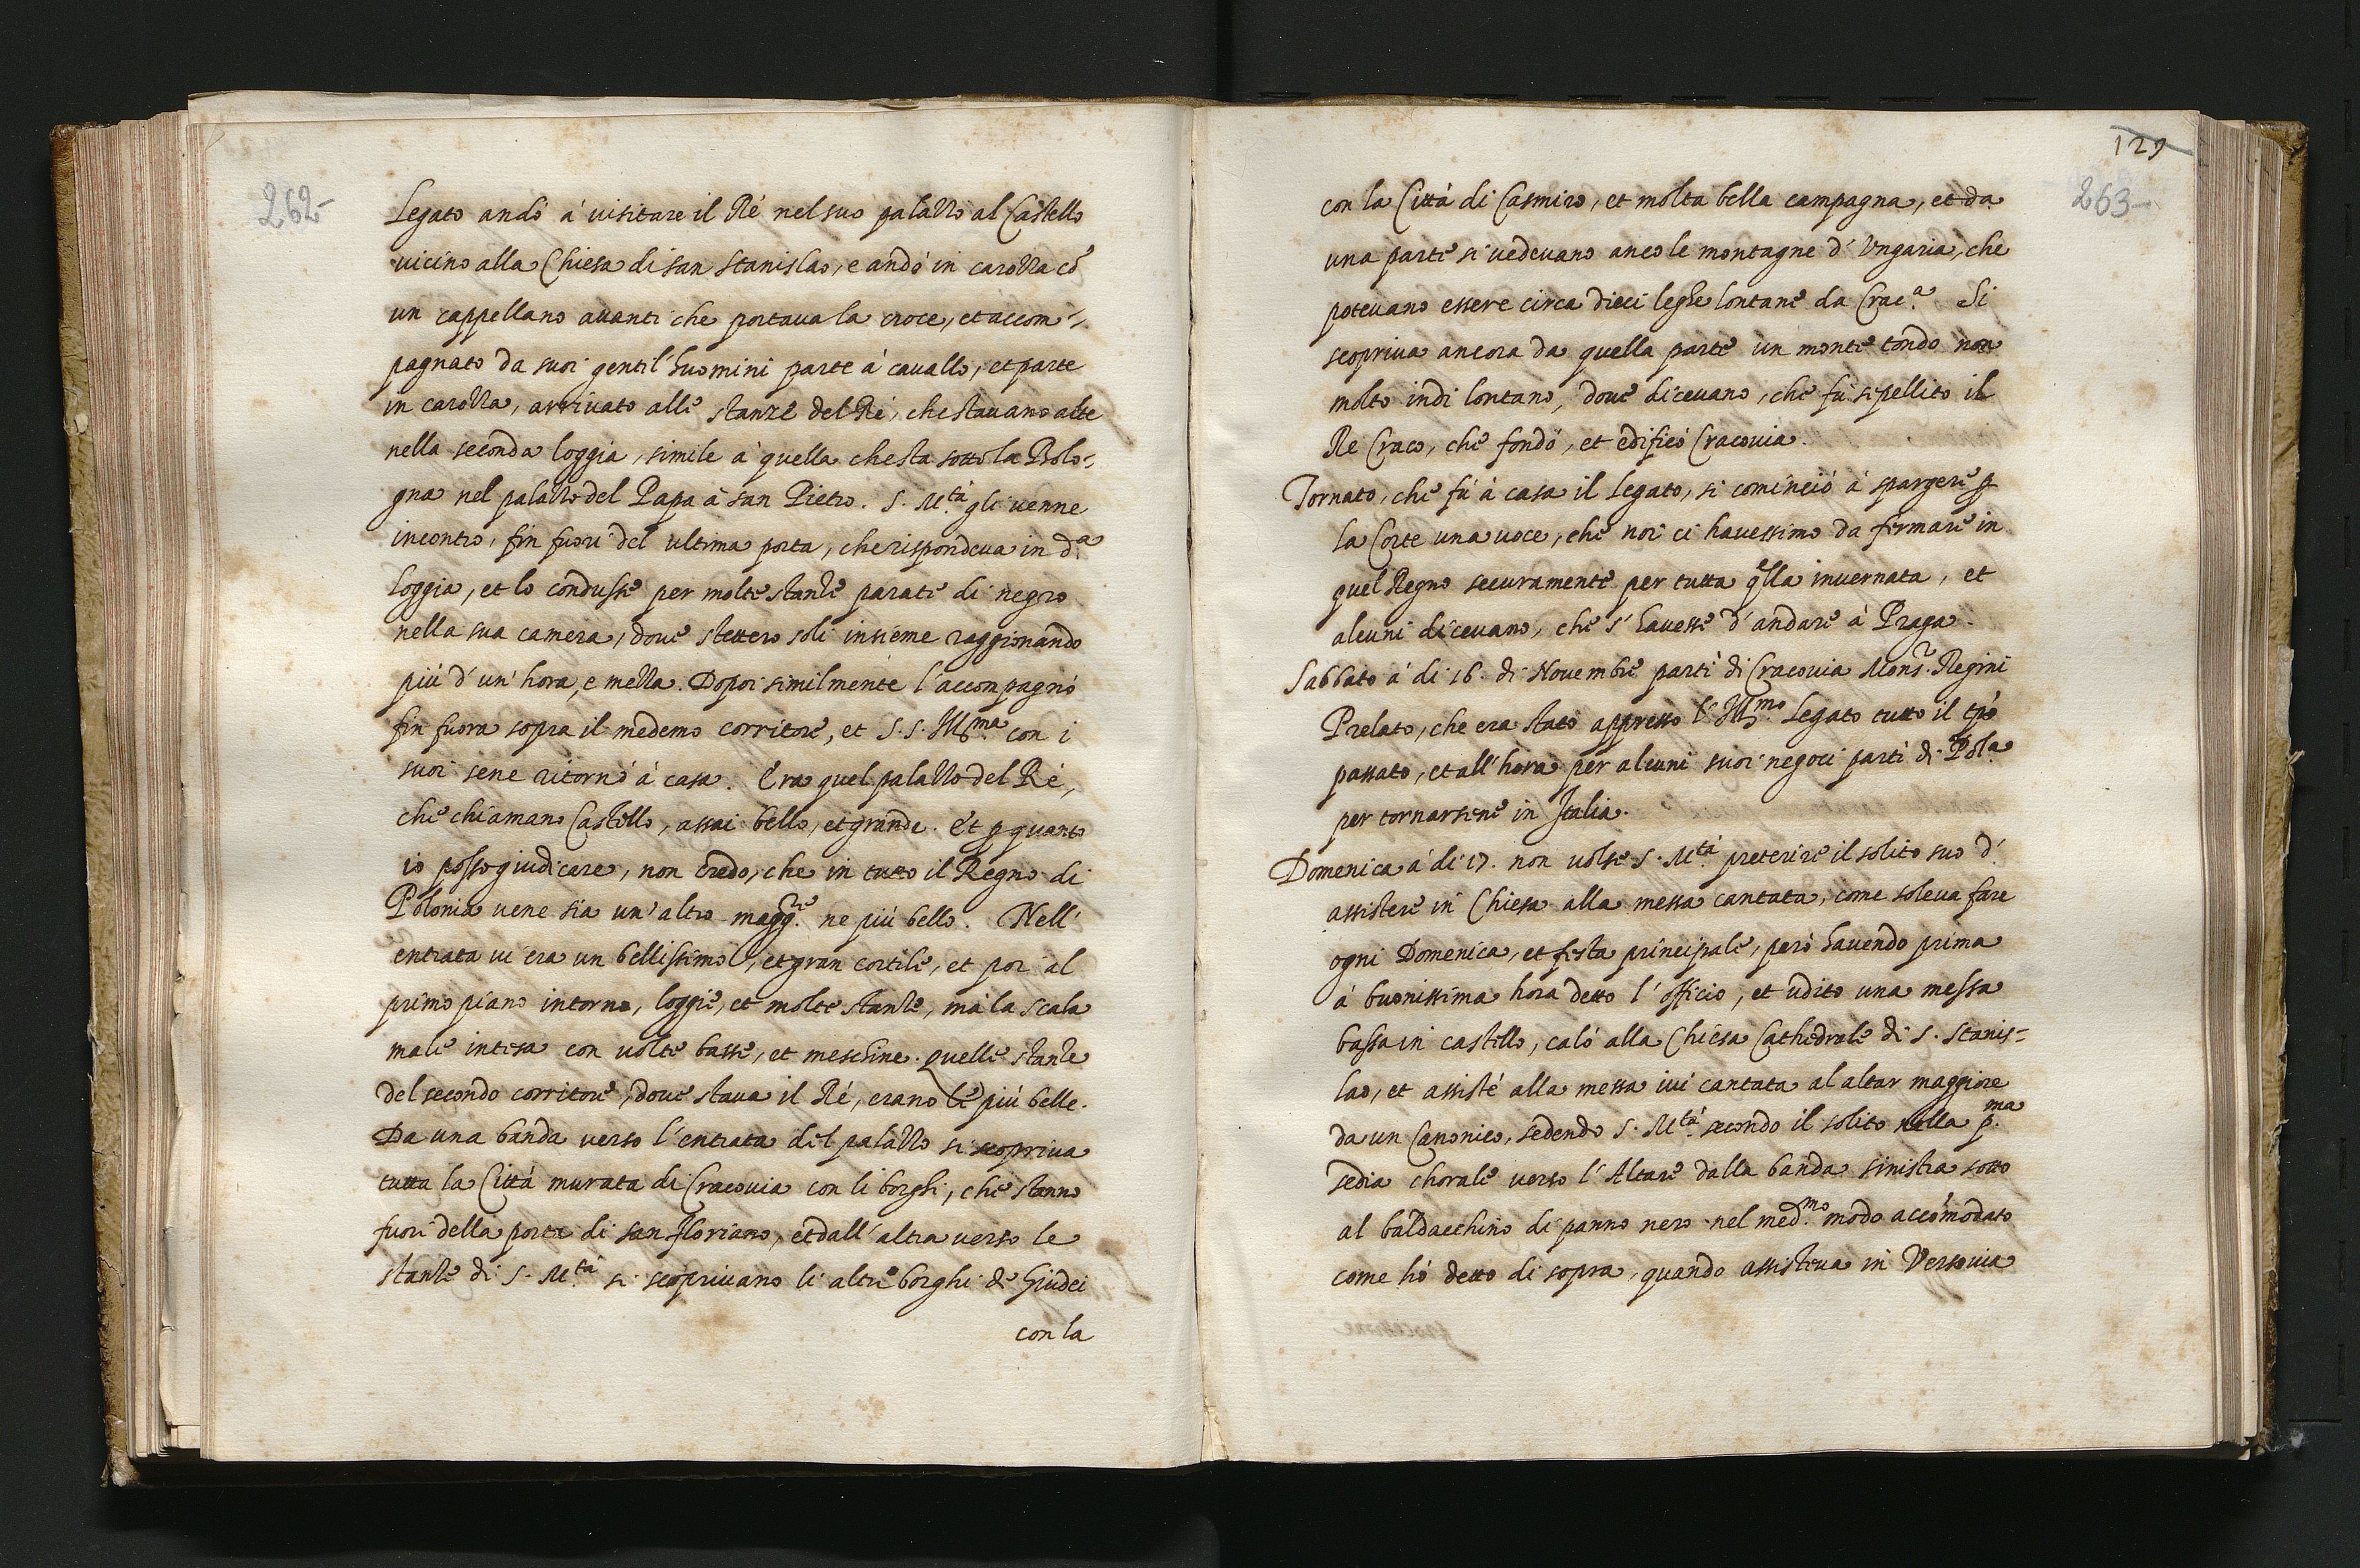 262
Legato andò à uisitare il Rè nel suo palazzo al Castello
uicino alla Chiesa di san Stanislao, e andò in carozza cõ
un cappellano auanti che portaua la croce, et accom=
pagnato da suoi gentil'huomini parte à cauallo, et parte
in carozza, arriuato alle stanze del Rè, che stauano alte
nella seconda loggia, simile à quella che sta sotto la Bolo=
gna nel palazzo del Papa à san Pietro. S. M.tà gli uenne
incontro, fin fuori del ultima porta, che rispondeua in d.a
loggia, et lo condusse per molte stanze parate di negro
nella sua camera, doue stettero soli insieme raggionando
più d'un'hora, e mezza. Dopoi similmente l'accompagnò
fin fuora sopra il medemo corritore, et S. S. Ill.ma con i
suoi sene ritornò à casa. Era quel palazzo del Rè,
che chiamano Castello, assai bello, et grande. Et ꝑ quanto
io posso giudicare, non credo, che in tutto il Regno di
Polonia uene sia un'altro magg.re ne più bello. Nell'
entrata ui era un bellissimo, et gran cortile, et poi al
primo piano intorno, loggie, et molte stanze, mà la scala
male intesa con uolte basse, et meschine. Quelle stanze
del secondo corritore, doue staua il Rè, erano le più belle.
Da una banda uerso l'entrata del palazzo si scopriua
tutta la Città murata di Cracouia con li borghi, che stanno
fuori della porta di san Floriano, et dall'altra uerso le
stanze di S. M.tà si scopriuano li altri borghi de Giudei
con la
129
263
con la Città di Casmiro, et molta bella campagna, et da
una parte si uedeuano anco le montagne d'Ungaria, che
poteuano essere circa dieci leghe lontane da Crac.a Si
scopriua ancora da quella parte un monte tondo non
molto indi lontano, doue diceuano, che fù sepellito il
Re Craco, che fondò, et edificò Cracouia.
Tornato, che fù à casa il Legato, si cominciò à spargere ꝑ
la Corte una uoce, che noi ci hauessimo da fermare in
quel Regno securamente per tutta q̃lla inuernata, et
alcuni diceuano, che s'hauesse d'andare à Praga.
Sabbato à di 16. di Nouembre partì di Cracouia Mons.r Regini
Prelato, che era stato appresso l'Ill.mo Legato tutto il tp̃o
passato, et all'hora per alcuni suoi negoci partì di Pol.a
per tornarsene in Italia.
Domenica à di 17. non uolse S. M.tà preterire il solito suo d'
assistere in Chiesa alla messa cantata, come soleua fare
ogni Domenica, et festa principale, però hauendo prima
à buonissima hora detto l'officio, et udito una messa
bassa in castello, calò alla Chiesa Cathedrale di S. Stanis=
lao, et assistè alla messa iui cantata al altar maggiore
da un Canonico, sedendo S. M.tà secondo il solito nella p.ma
sedia chorale uerso l'Altare dalla banda sinistra sotto
al baldacchino di panno nero nel med.mo modo accõmodato
come hò detto di sopra, quando assisteua in Versouia